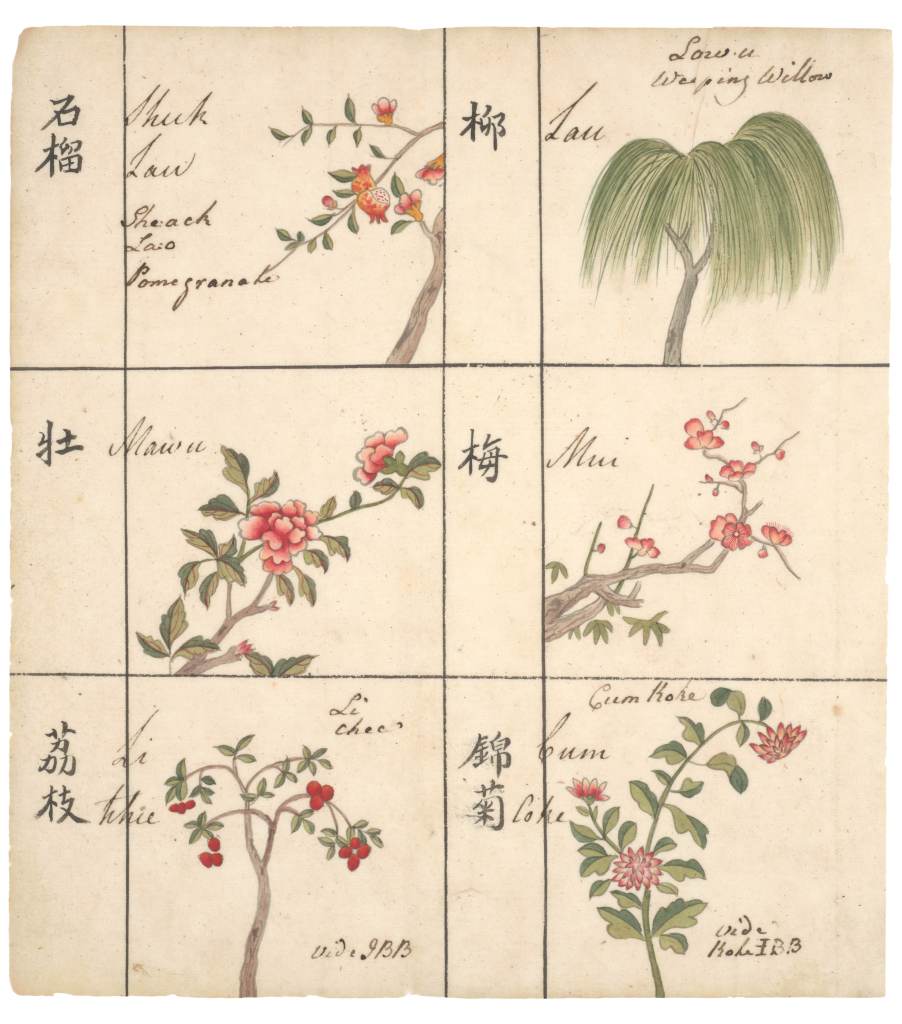 石榴
Shuk
Lau
Sheack
Lao
Pomegranate
柳
Lau
Low.u
Weeping Willow
壮
Mawu
梅
Mui
荔枝
Li
Li
chee
vide IBB
錦菊
Cum
Coke
Cum Koke
vide
Koke IBB